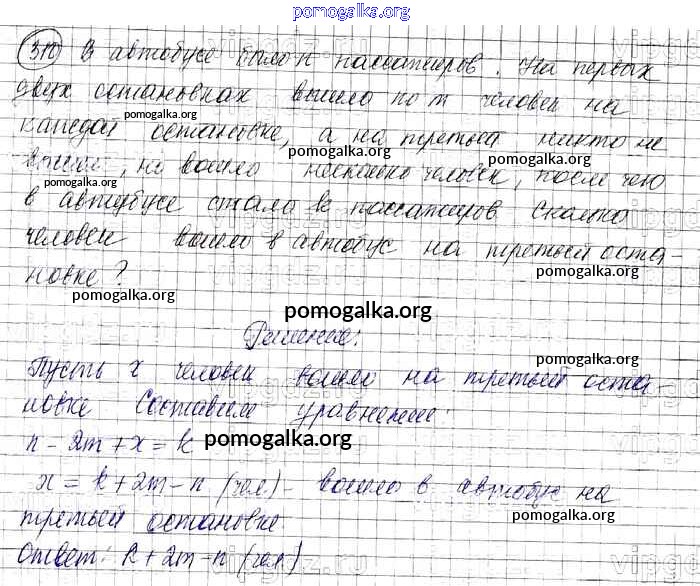 pomogalka.org
310 В автобусе было n пассажиров. На первых
двух остановках вышло по m человек на
каждой остановке, а на третьей никто не
pomogalka.org
pomogalka.org
вышел, но вошло несколько человек, после чего
pomogalka.org
в автобусе стало k пассажиров. Сколько
pomogalka.org
человек вошло в автобус на третьей оста-
новке?
pomogalka.org
pomogalka.org
pomogalka.org
Решение:
pomogalka.org
Пусть x человек вошло на третьей оста-
новке Составим уравнение:
n - 2m + x = k
pomogalka.org
x = k + 2m - n (чел) - вошло в автобус на
третьей остановке
pomogalka.org
Ответ: k + 2m - n (чел)
vipgdz.ru